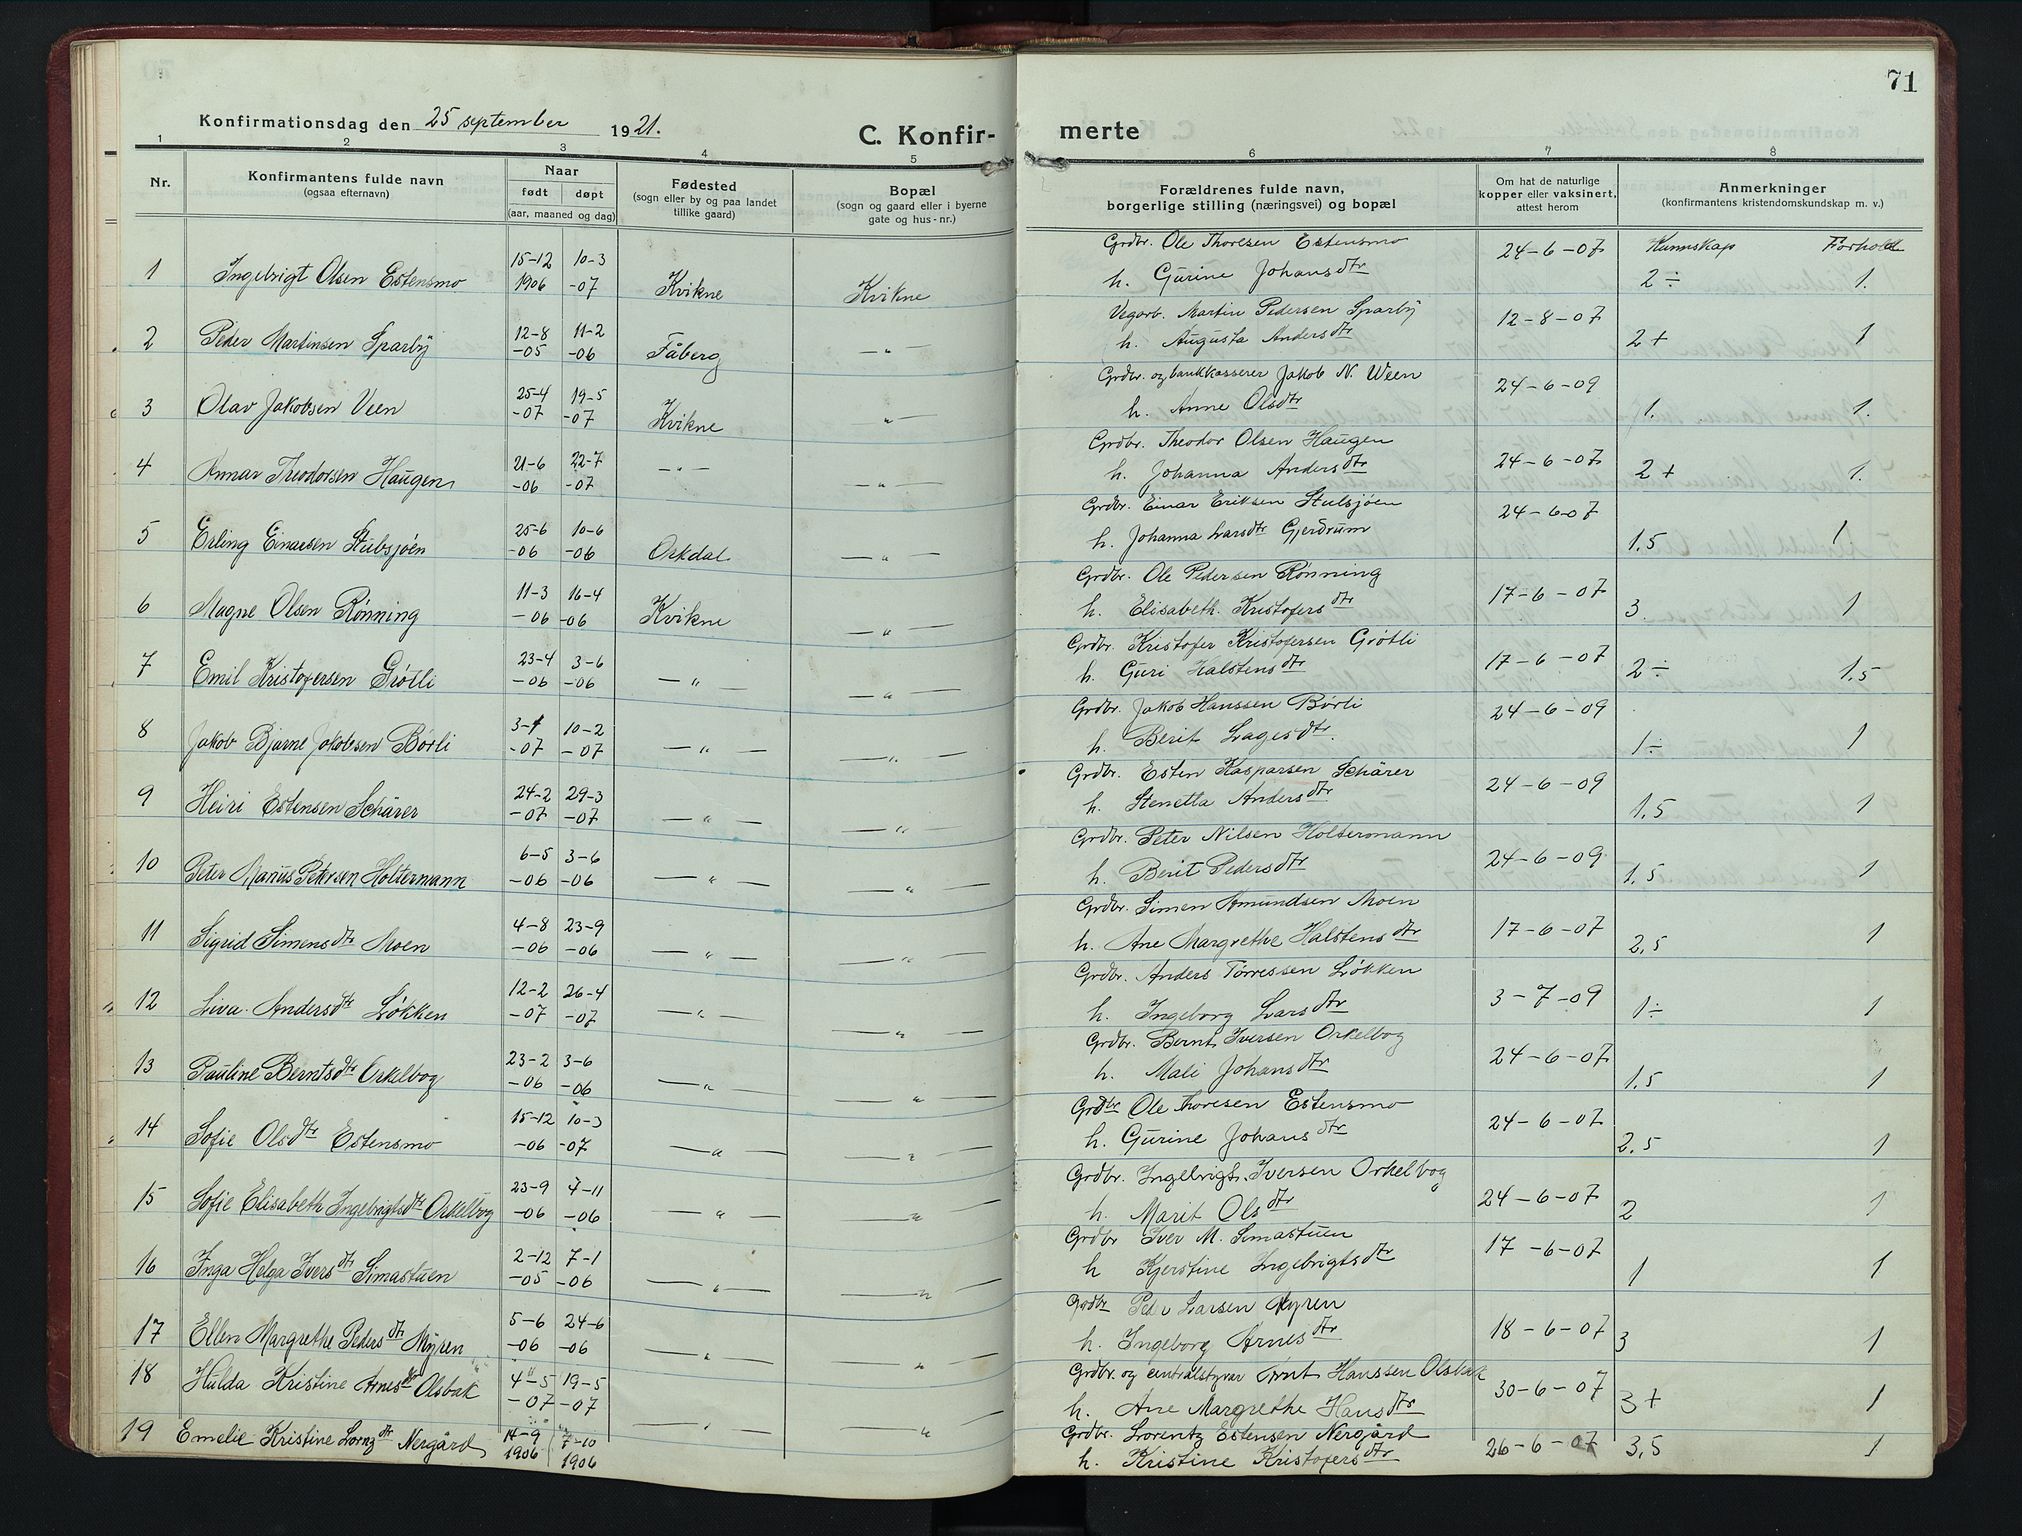 71
Konfirmationsdag den 25 september 1921.
C. Konfir-
merte
1 2 3 4 5 6 7 8
Nr.
Konfirmantens fulde navn
(ogsaa efternavn)
Naar
født døpt
(aar, maaned og dag)
Fødested
(sogn eller by og paa landet
tillike gaard)
Bopæl
(sogn og gaard eller i byerne
gate og hus-nr.)
Forældrenes fulde navn,
borgerlige stilling (næringsvei) og bopæl
Om hat de naturlige
kopper eller vaksinert,
attest herom
Anmerkninger
(konfirmantens kristendomskundskap m. v.)
Kunnskap Forhold
15-12 10-3 Grdbr. Ole Thoresen Estensmo 24-6-07
1 Ingebrigt Olsen Estensmo 1906 -07 Kvikne Kvikne h. Gurine Johansdtr 2÷ 1.
12-8 11-2 Vegarb. Martin Pedersen Sparby 12-8-07
2 Peder Martinsen Sparby -05 -06 Fåberg -"- h. Augusta Andersdtr 2+ 1
25-4 19-5 Grdbr. og bankkasserer Jakob N. Ween 24-6-09
3 Olav Jakobsen Veen -07 -07 Kvikne -"- h. Anne Olsdtr 1. 1.
21-6 22-7 Grdbr. Theodor Olsen Haugen 24-6-07
4 Annar Theodorsen Haugen -06 -07 -"- -"- h. Johanna Andersdtr 2+ 1.
25-6 10-6 Grdbr. Einar Eriksen Stubsjøen 24-6-07
5 Erling Einarsen Stubsjøen -06 -06 Orkdal -"- h. Johanna Larsdtr Gjerdrum 1,5 1
11-3 16-4 Grdbr. Ole Pedersen Rønning 17-6-07
6 Magne Olsen Rønning -06 -06 Kvikne -"- h. Elisabeth Kristofersdtr 3. 1
23-4 3-6 Grdbr. Kristofer Kristofersen Grøtli 17-6-07
7 Emil Kristofersen Grøtli -06 -06 -"- -"- h. Guri Halstensdtr 2÷ 1,5
10-2 Grdbr. Jakob Hanssen Børli 24-6-09
8 Jakob Bjarne Jakobsen Børli -07 -07 -"- -"- h. Berit Lagesdtr. 1÷ 1
24-2 29-3 Grdbr. Esten Kasparsen Schärer 24-6-09
9 Heiri Estensen Schärer -07 -07 -"- -"- h. Stenetta Andersdtr 1,5 1
6-5 3-6 Grdbr. Peter Nilsen Holtermann 24-6-09
10 Peter Marius Petersen Holtermann -06 -06 -"- -"- h. Berit Pedersdtr 1,5 1
4-8 23-9 Grdbr. Simen Amundsen Moen 17-6-07
11 Sigrid Simensdtr Moen -06 -06 -"- -"- h. Ane Margrethe Halstensdtr 2,5 1
12-2 26-4 Grdbr. Anders Tørressen Løkken 3-7-09
12 Liva Andersdtr Løkken -07 -07 -"- -"- h. Ingeborg Larsdtr 1÷ 1
23-2 3-6 Grdbr. Bernt Iversen Orkelbog 24-6-07
13 Pauline Berntsdtr Orkelbog -06 -06 -"- -"- h. Mali Johansdtr 1,5 1
15-12 10-3 Grdbr Ole Thoresen Estensmo 24-6-07
14 Sofie Olsdtr Estensmo -06 -07 -"- -"- h. Gurine Johansdtr 2,5 1
23-9 4-11 Grdbr. Ingebrigt Iversen Orkelbog 24-6-07
15 Sofie Elisabeth Ingebrigtsdtr Orkelbog -06 -06 -"- -"- h. Marit Olsdtr 2 1
2-12 7-1 Grdbr Iver M. Simastuen 17-6-07
16 Inga Helga Iversdtr Simastuen -05 -06 -"- -"- h Kjerstine Ingebrigtsdtr 1 1
5-6 24-6 Grdbr Peder Larsen Myren 18-6-07
17 Ellen Margrethe Pedersdtr Myren -06 -06 -"- -"- h. Ingeborg Arnesdtr 3 1
4-5 19-5 Grdbr. og centralstyrer Arnt Hanssen Olsbak 30-6-07
18 Hulda Kristine Olsbak -07 -07 -"- -"- h. Ane Margrethe Hansdtr 3+ 1
14-9 7-10 Grdbr. Lorentz Estensen Nergård
19 Emelie Kristine Nergård 1906 1906 h. Kristine Kristofersdtr 26-6-07 3,5 1